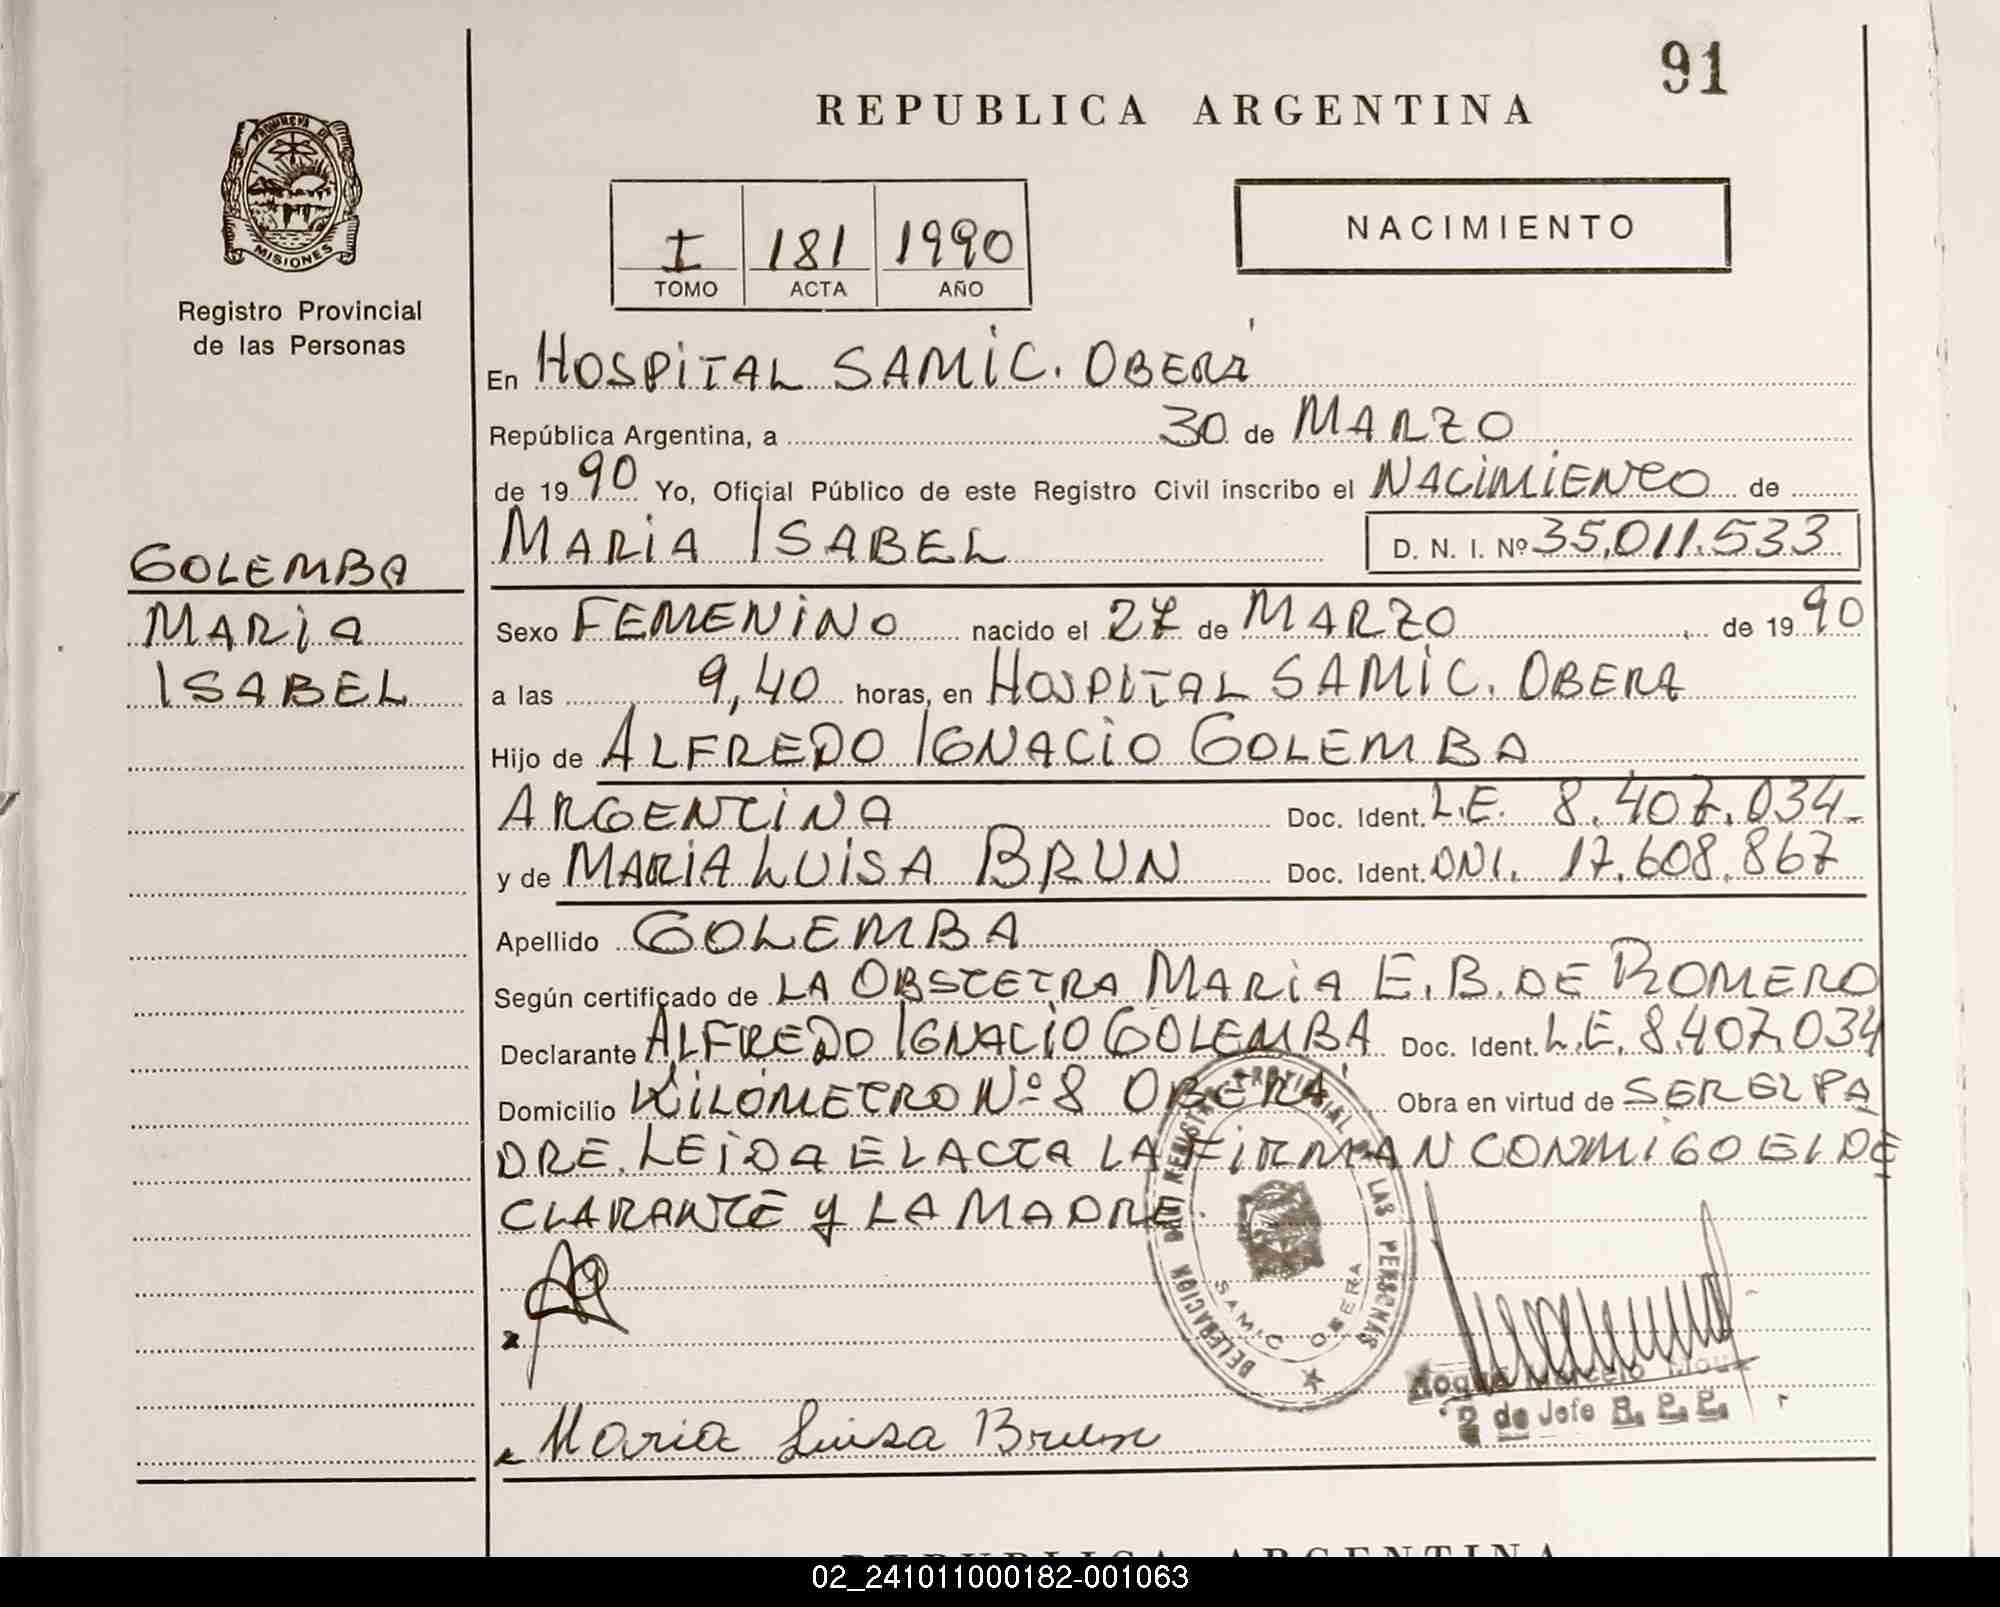 91
REPUBLICA ARGENTINA
PROVINCIA DE
MISIONES
Registro Provincial
de las Personas
I 181 1990
TOMO ACTA AÑO
NACIMIENTO
En HOSPITAL SAMIC. OBERÁ
República Argentina, a 30 de MARZO
de 19 90 Yo, Oficial Público de este Registro Civil inscribo el NACIMIENTO de
MARIA ISABEL D. N. I. Nº 35.011.533
GOLEMBA
MARIA
ISABEL
Sexo FEMENINO nacido el 27 de MARZO de 19 90
a las 9,40 horas, en HOSPITAL SAMIC. OBERA
Hijo de ALFREDO IGNACIO GOLEMBA
ARGENTINA Doc. Ident. L.E. 8.407.034-
y de MARIA LUISA BRUN Doc. Ident. DNI. 17.608.867
Apellido GOLEMBA
Según certificado de LA OBSTETRA MARIA E. B. DE ROMERO
Declarante ALFREDO IGNACIO GOLEMBA Doc. Ident. L.E. 8.407.034
Domicilio KILÓMETRO Nº 8 OBERÁ Obra en virtud de SER EL PA
DRE. LEIDA EL ACTA LA FIRMAN CONMIGO EL DE
CLARANTE Y LA MADRE.
DELEGACION DEL REGISTRO PROVINCIAL DE LAS PERSONAS
SAMIC OBERA
Roque Marcelo
2 de Jefe R. P. P.
x
x Maria Luisa Brun
REPUBLICA ARGENTINA
02_241011000182-001063